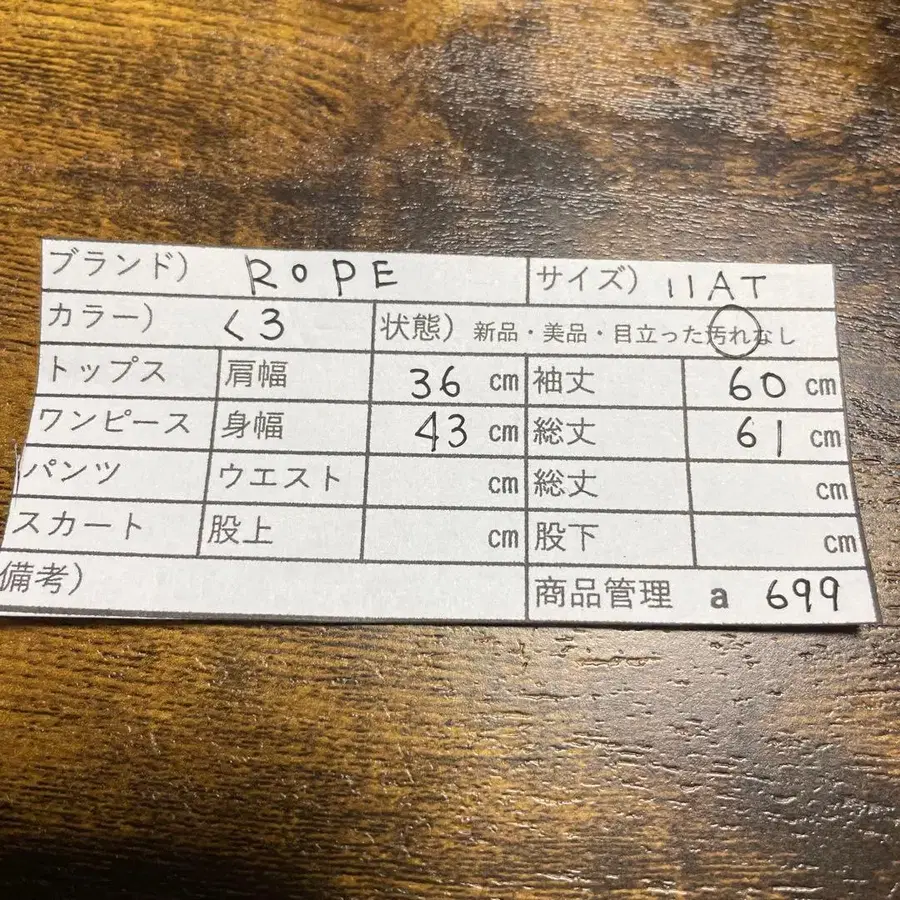 ブランド) ROPE サイズ) 11AT
カラー) くろ 状態) 新品・美品・目立った汚れなし
トップス 肩幅 36 cm 袖丈 60 cm
ワンピース 身幅 43 cm 総丈 61 cm
パンツ ウエスト cm 総丈 cm
スカート 股上 cm 股下 cm
備考) 商品管理 a 699